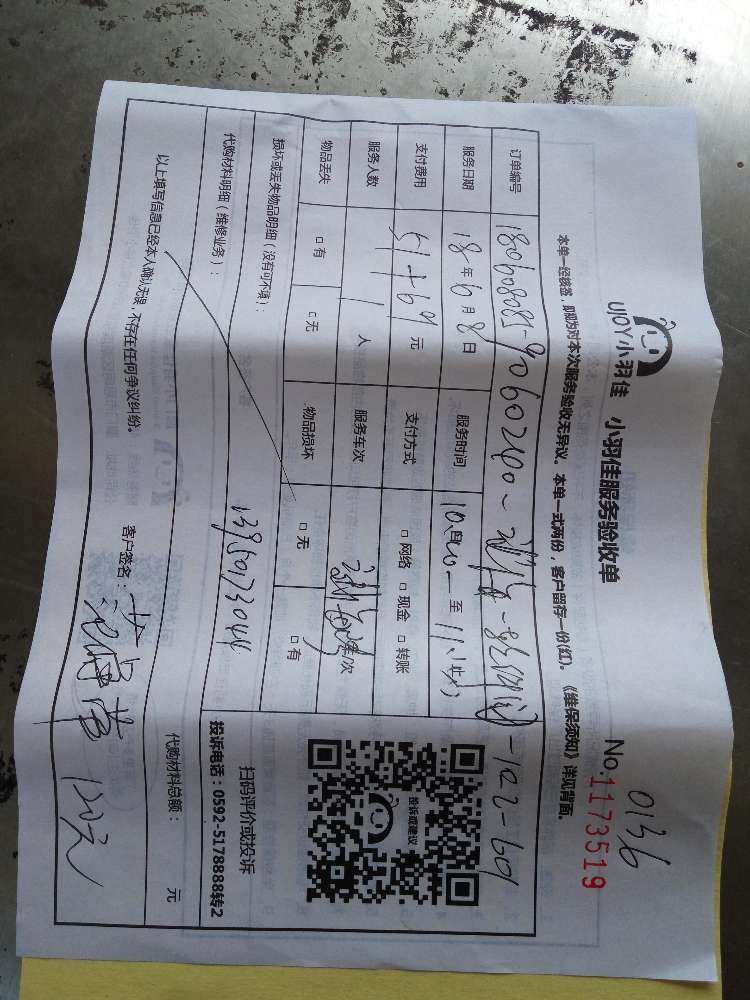 0136
UJOY小羽佳 小羽佳服务验收单 No 1173519
本单一经核签，即视为对本次服务验收无异议。本单一式两份，客户留存一份(红)。《维保须知》详见背面。
订单编号
服务日期 18年6月8日 服务时间 至
支付费用 51+69元 支付方式 □ 网络 □ 现金 □ 转账
服务人数 1人 服务车次 车次
物品丢失 □ 有 □ 无 物品损坏 □ 无 □ 有
投诉或建议
扫码评价或投诉
投诉电话：0592-5178888转2
损坏或丢失物品明细（没有可不填）：
代购材料明细（维修业务）：
代购材料总额： 元
以上填写信息已经本人确认无误，不存在任何争议纠纷。 客户签名：
120元